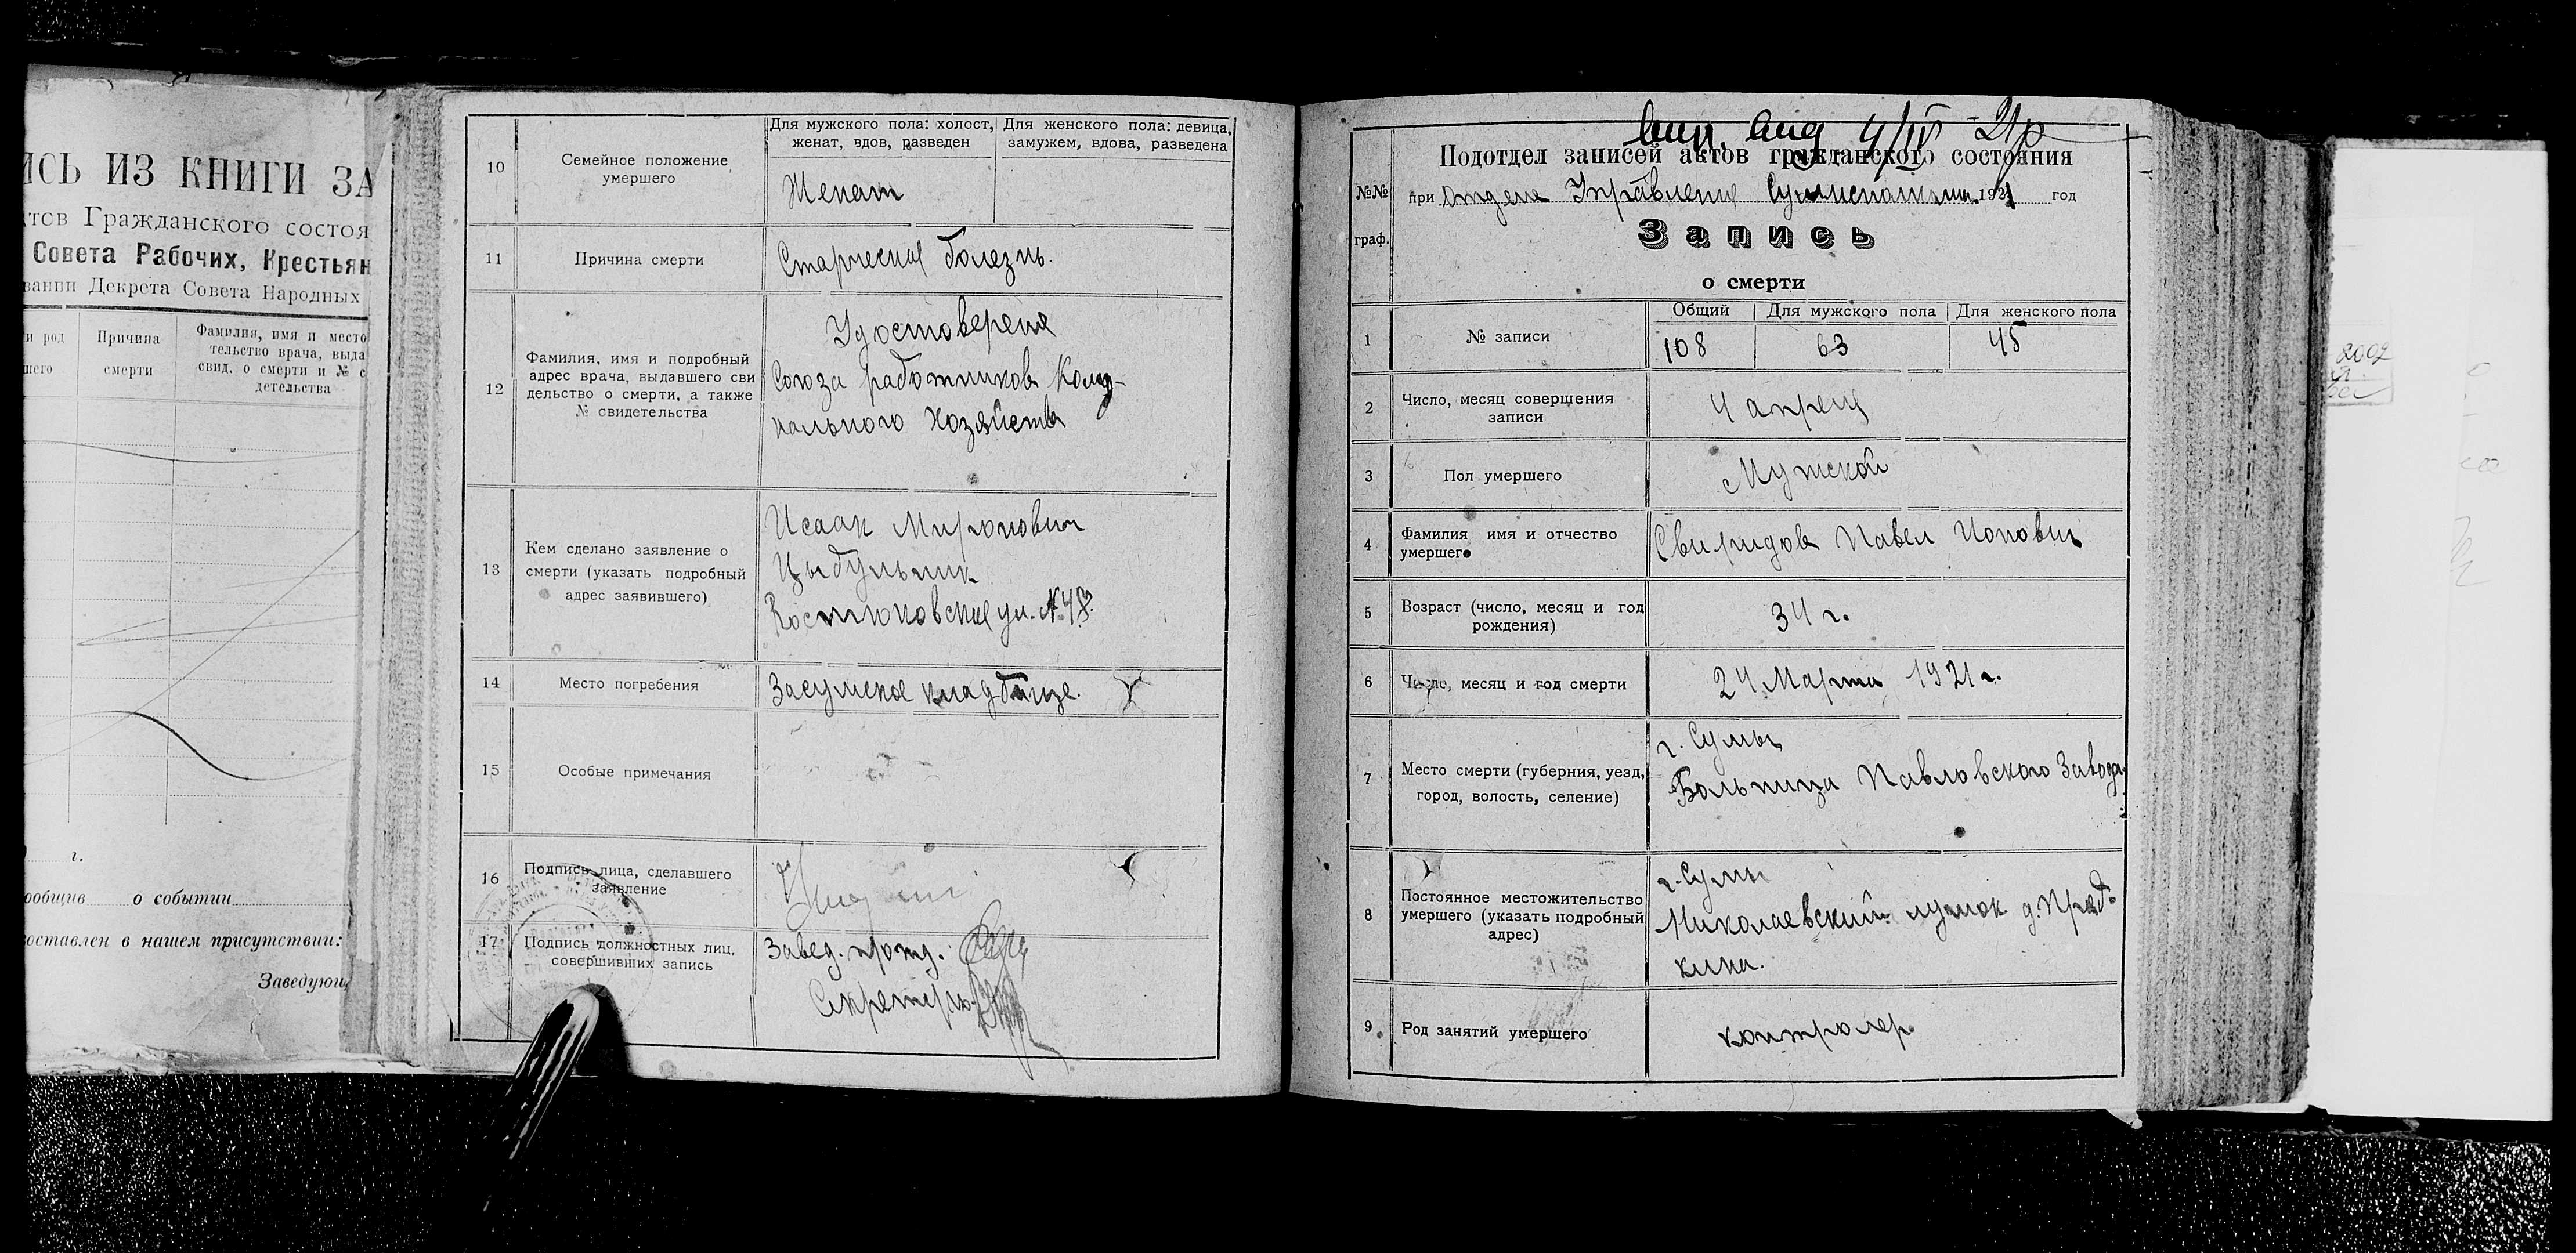 ИСЬ ИЗ КНИГИ ЗА
тов Гражданского состоя
Совета Рабочих, Крестьян
вании Декрета Совета Народных
и род
шего
Причина
смерти
Фамилия, имя и место
тельство врача, выда
свид. о смерти и № с
детельства
г.
ообщив о событии
оставлен в нашем присутствии:
Заведуюи
10
Семейное положение
умершего
Для мужского пола: холост,
женат, вдов, разведен
Для женского пола: девица,
замужем, вдова, разведена
Женат
11
Причина смерти
Старческая болезнь.
12
Фамилия, имя и подробный
адрес врача, выдавшего сви
дельство о смерти, а также
№ свидетельства
Удостоверения
Союза работников Комму-
нального Хозяйства
13
Кем сделано заявление о
смерти (указать подробный
адрес заявившего)
Исаак Миронович
Цыбульник
Костюковская ул. №48.
14
Место погребения
Засумское кладбище.
15
Особые примечания
16
Подпись лица, сделавшего
заявление
17
Подпись должностных лиц,
совершивших запись
Завед. подотд.
Секретарь
4/IV-21р
Подотдел записей актов гражданского состояния
№№
граф.
при Отделе Управления 1921 год
Запись
о смерти
1
№ записи
Общий
Для мужского пола
Для женского пола
108
63
45
2
Число, месяц совершения
записи
4 апреля
3
Пол умершего
Мужской
4
Фамилия имя и отчество
умершего
Свиридов Павел Ионович
5
Возраст (число, месяц и год
рождения)
34 г.
6
Число, месяц и год смерти
24 Марта 1921 г.
7
Место смерти (губерния, уезд,
город, волость, селение)
г. Сумы
Больница Павловского Завода
8
Постоянное местожительство
умершего (указать подробный
адрес)
г. Сумы
Николаевский
кина.
9
Род занятий умершего
контролер
2002